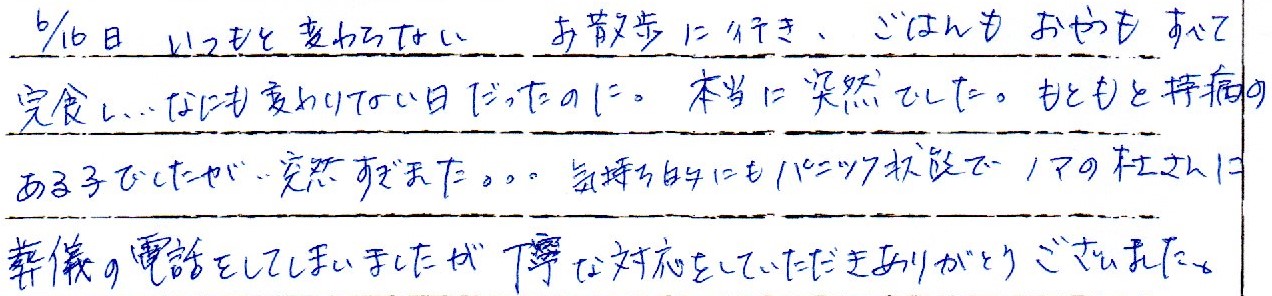 6/16日 いつもと変わらない お散歩に行き、ごはんも おやつも すべて
完食し…なにも変わりない日だったのに。本当に突然でした。もともと持病の
ある子でしたが‥突然すぎました。。。気持ち的にもパニック状態で ノアの杜さんに
葬儀の電話をしてしまいましたが 丁寧な対応をしていただきありがとうございました。